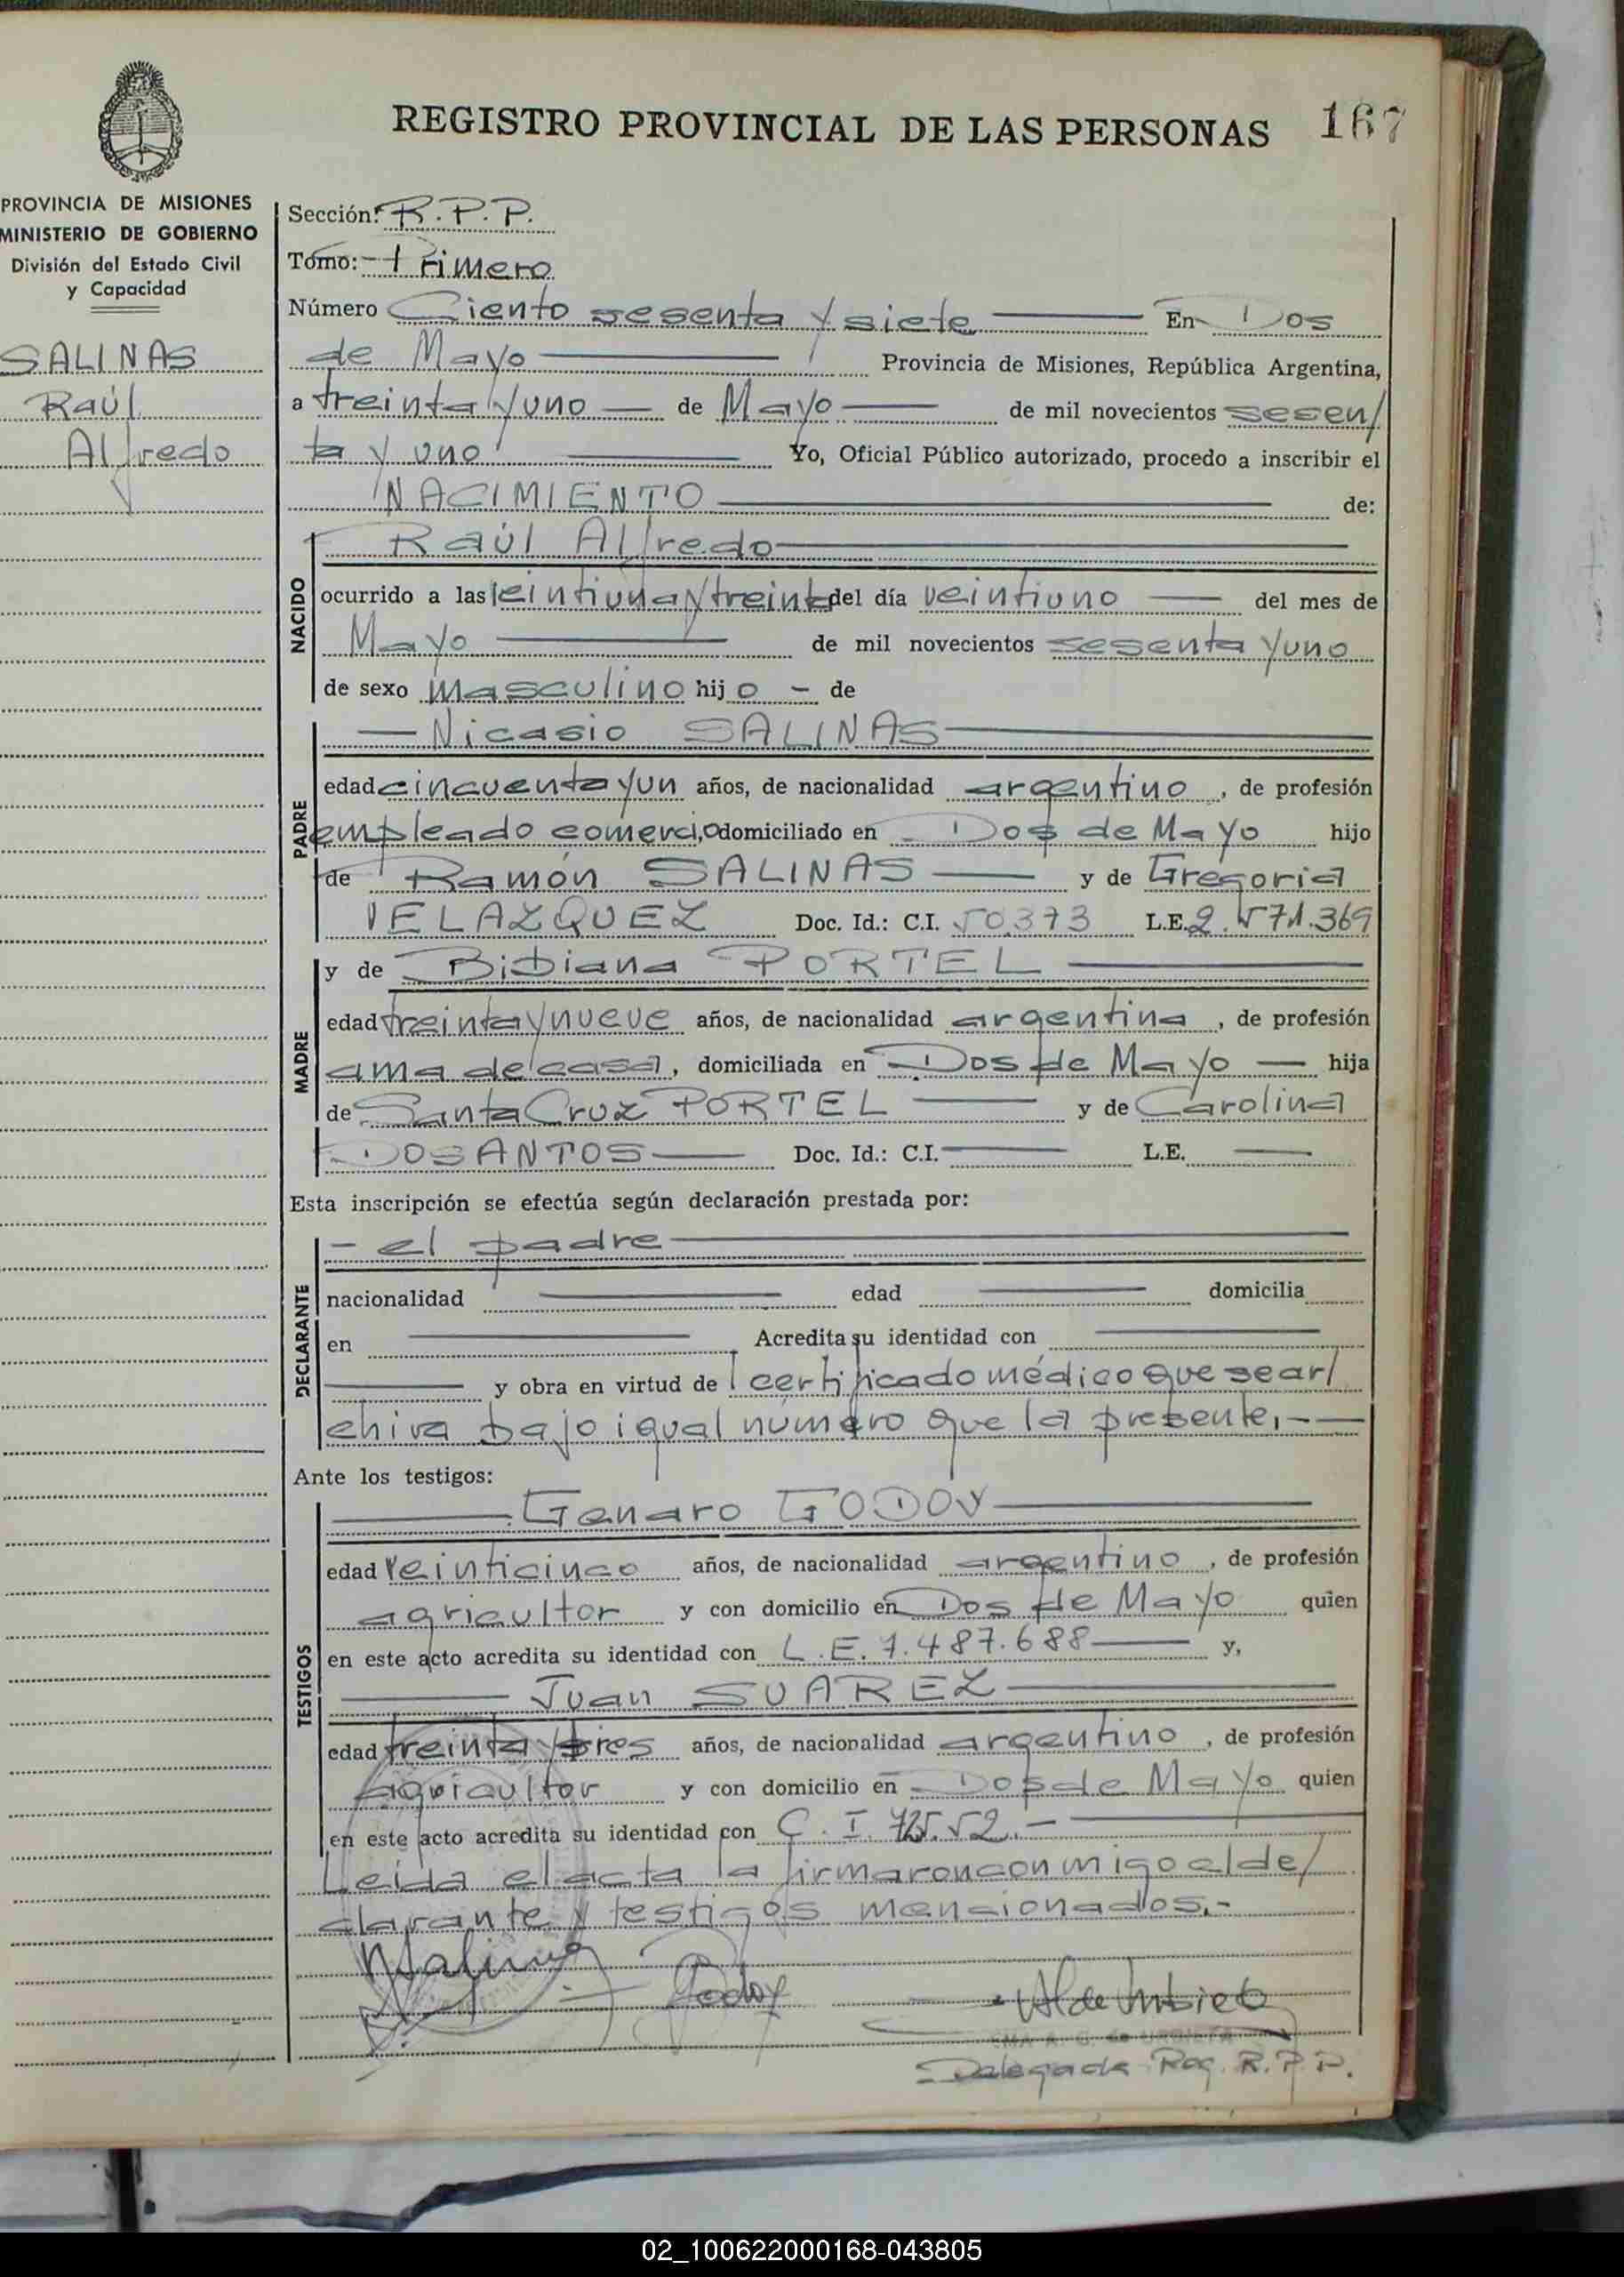 REGISTRO PROVINCIAL DE LAS PERSONAS 167
PROVINCIA DE MISIONES
MINISTERIO DE GOBIERNO
División del Estado Civil
y Capacidad
SALINAS
Raúl
Alfredo
Sección: R.P.P.
Tomo: Primero
Número Ciento sesenta y siete En Dos
de Mayo Provincia de Misiones, República Argentina,
a treinta y uno de Mayo de mil novecientos sesen/
ta y uno Yo, Oficial Público autorizado, procedo a inscribir el
NACIMIENTO de:
NACIDO
Raúl Alfredo
ocurrido a las veintiuna y treinta del día veintiuno del mes de
Mayo de mil novecientos sesenta y uno
de sexo masculino hijo - de
PADRE
Nicasio SALINAS
edad cincuenta y un años, de nacionalidad argentino, de profesión
empleado comercio, domiciliado en Dos de Mayo hijo
de Ramón SALINAS y de Gregoria
VELAZQUEZ Doc. Id.: C.I. 50.373 L.E. 2.571.369
MADRE
y de Bibiana PORTEL
edad treinta y nueve años, de nacionalidad argentina, de profesión
ama de casa, domiciliada en Dos de Mayo hija
de Santa Cruz PORTEL y de Carolina
DOSANTOS Doc. Id.: C.I. L.E.
Esta inscripción se efectúa según declaración prestada por:
DECLARANTE
- el padre
nacionalidad edad domicilia
en Acredita su identidad con
y obra en virtud de certificado médico que se ar/
chiva bajo igual número que la presente.-
Ante los testigos:
TESTIGOS
Genaro GODOY
edad veinticinco años, de nacionalidad argentino, de profesión
agricultor y con domicilio en Dos de Mayo quien
en este acto acredita su identidad con L.E. 7.487.688 y,
Juan SUAREZ
edad treinta y tres años, de nacionalidad argentino, de profesión
agricultor y con domicilio en Dos de Mayo quien
en este acto acredita su identidad con C.I.
Leída el acta la firmaron conmigo el de/
clarante y testigos mencionados.-
Godoy
Delegada Reg. R.P.P.
02_100622000168-043805